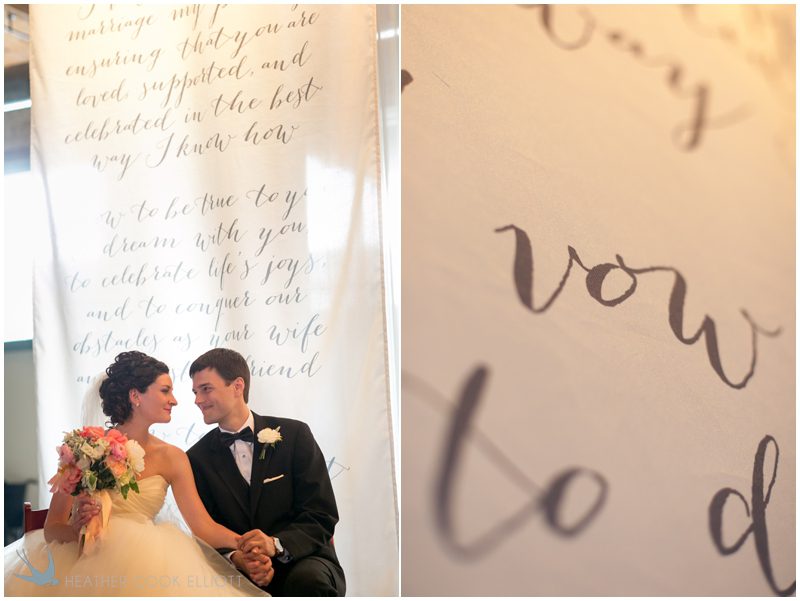 marriage my
ensuring that you are
loved, supported, and
celebrated in the best
way I know how
to be true to
dream with you,
to celebrate life's joys,
and to conquer our
obstacles as your wife
HEATHER COOK ELLIOTT
vow
to